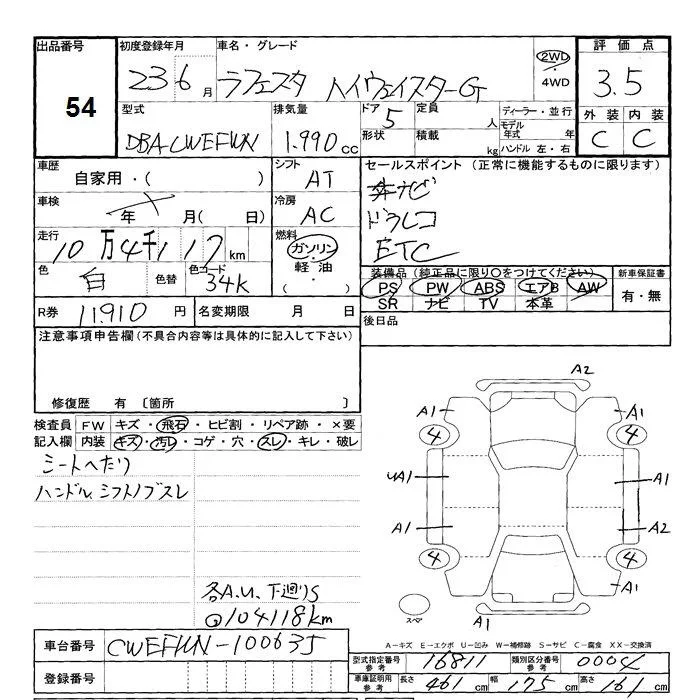 出品番号 初度登録年月 車名・グレード 評価点
54 23 6月 ラフェスタ ハイウェイスターG 2WD ・ 4WD 3.5
型式 排気量 ドア 定員 人 ディーラー・並行 外装 内装
DBA-CWEFWN 1.990cc 5 形状 積載 kg モデル年式 年 ハンドル 左・右 C C
車歴 シフト セールスポイント(正常に機能するものに限ります)
自家用・( ) AT ナビ
車検 年 月(日) 冷房 AC ドラレコ
走行 10万4千117km 燃料 ガソリン・軽油・( ) ETC
色 白 色替 色コード 34K 装備品(純正品に限り○をつけてください) 新車保証書
PS PW ABS エアB AW 有・無
SR ナビ TV 本革
R券 11.910円 名変期限 月 日 後日品
注意事項申告欄(不具合内容等は具体的に記入して下さい)
修復歴 有 〔箇所 〕
検査員 FW キズ・飛石・ヒビ割・リペア跡・×要
記入欄 内装 キズ・汚レ・コゲ・穴・スレ・キレ・破レ
シートへたり
ハンドル、シフトノブスレ
各A.U、下廻りS
@104118km
A2
A1 A1
4 4
UA1 A1
A1 A2
4 4
A1
A1
スペア
A-キズ E-エクボ U-凹み W-補修跡 S-サビ C-腐食 XX-交換済
車台番号 CWEFWN-100635
登録番号
型式指定番号 参考 16811 類別区分番号 参考 0004
車庫証明用 参考 長さ 461cm 幅 175cm 高さ 161cm